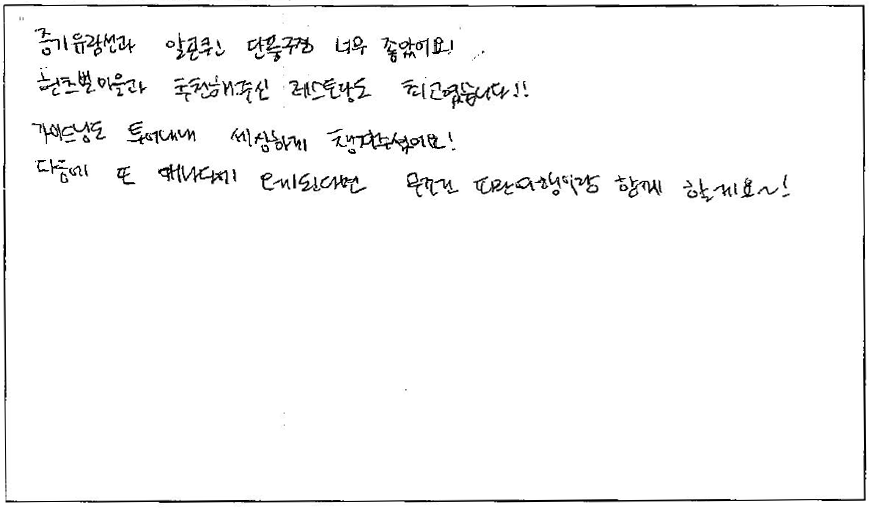 증기유람선과 알곤퀸 단풍구경 너무 좋았어요!
헌츠빌마을과 추천해주신 레스토랑도 최고였습니다!!
가이드님도 투어내내 세심하게 챙겨주셨어요!
다음에 또 캐나다에 오게된다면 무조건 파란여행이랑 함께 할게요~!